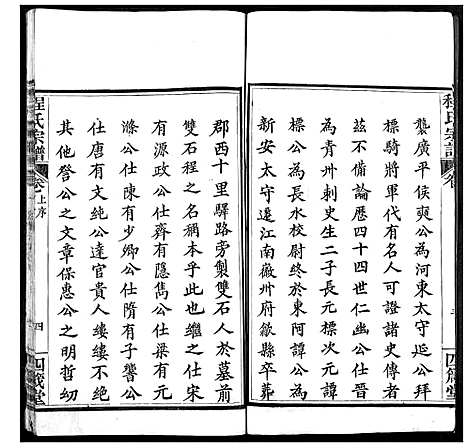 襲廣平侯奭公為河東太守延公拜
標騎將軍代有名人可證諸史傳者
茲不備論歷四十四世仁幽公仕晉
為青州刺史生二子長元標次元譚
標公為校尉終於東阿譚公為
新安太守遂江南徽州府歙縣卒葬
程氏宗譜
四箴堂
郡西十里驛路旁製雙石人於墓前
雙石程之名稱本乎此也繼之仕宋
有源政公仕齊有隱雋公仕梁有元
滌公仕陳有少卿公仕隋有子響公
仕唐有文純公達官貴人縷縷不絕
其他碧山公之文章保惠公之威武
程氏宗譜 卷 上序 四 四箴堂